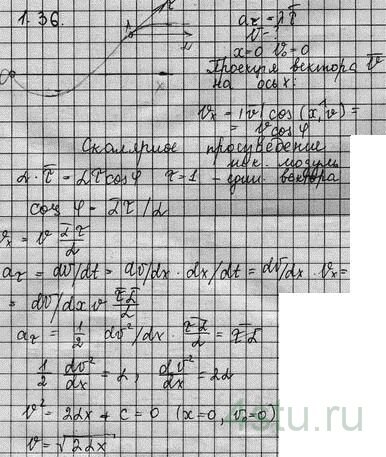 1.36.
A
O
x
aτ = 2τ̄
v̄ - ?
x=0 v₀=0
Проекция вектора v̄
на ось x:
vₓ = |v| cos(x,^v) =
= v cos φ
Скалярное произведение
α · τ̄ = ατ cos φ τ=1 - един. вектора
cos φ = ᾱτ̄/α
vₓ = v ᾱτ̄/α
aτ = dv/dt = dv/dx · dx/dt = dv/dx · vₓ =
= dv/dx v τ̄ᾱ/α
aτ = 1/2 dv²/dx · τ̄ᾱ/α = τ̄ᾱ
1/2 dv²/dx = α ; dv²/dx = 2α
v² = 2αx + c = 0 (x=0, v₀=0)
v = √2αx
4stu.ru